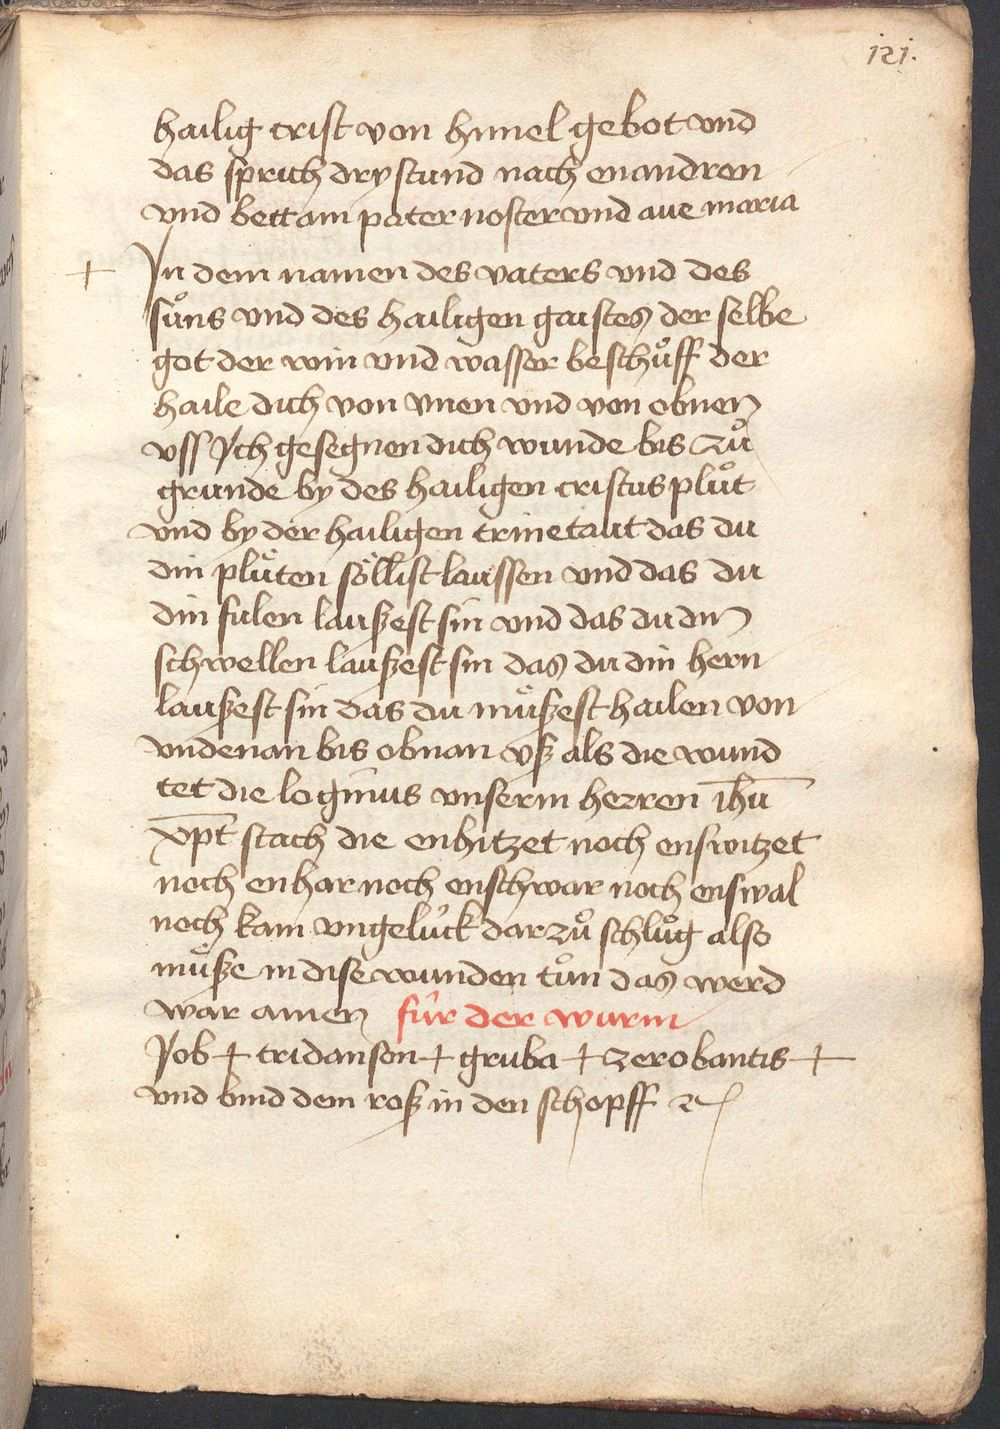 121.
hailig crist von himel gebot vnd
das sprich dry stund nach enandren
vnd bett ain pater noster vnd aue maria
+ In dem namen des vaters vnd des
sůns vnd des hailigen gaistes der selbe
got der win vnd wasser beschůff der
haile dich von vnen vnd von obnen
vss Jch gesegnen dich wunde bis zů
grunde by des hailigen cristus plůt
vnd by der hailigen trinetaut das du
din plůten söllist laussen vnd das du
din fulen laußest sin vnd das du din
schwellen laußest sin das du din hern
laußest sin das du můßest hailen von
vndenan bis obnan vß als die wund
tet die loginus vnserm herren ihu
xpt stach die enhitzet noch enswitzet
noch enhar noch enschwar noch enswal
noch kain vngelúck dar zů schlůg also
můße in dise wunden tůn das werd
war amen fúr der wurm
Job + tridanson + gruba + zerobantis +
vnd bind dem roß in den schopff